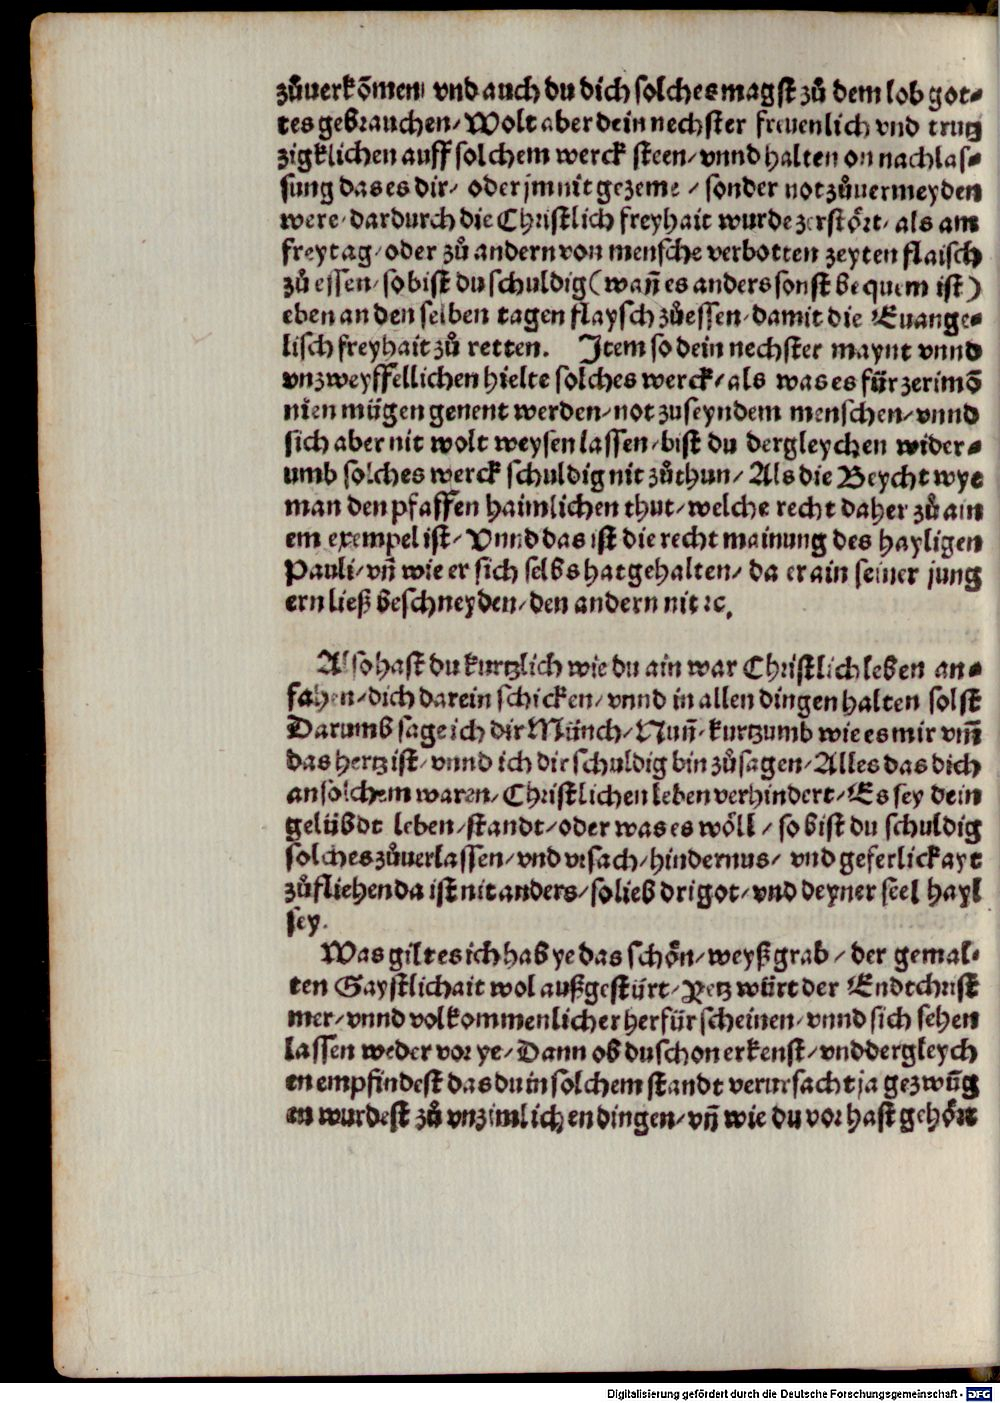 zůuerkõmen/ vnd auch du dich solches magst zů dem lob got-
tes gebrauchen/ Wolt aber dein nechster freuenlich vnd trutz
zigklichen auff solchem werck steen/ vnnd halten on nachlas-
sung das es dir/ oder jm nit gezeme / sonder not zůuermeyden
were/ dardurch die Christlich freyhait wurde zerstört/ als am
freytag/ oder zů andern von mensche verbotten zeyten flaisch
zů essen/ so bist du schuldig (wañ es anders sonst bequem ist)
eben an den selben tagen flaysch zůessen/ damit die Euange-
lisch freyhait zů retten. Item so dein nechster maynt vnnd
vnzweyffellichen hielte solches werck/ als was es für zerimõ
nien mügen genent werden/ not zuseyn dem menschen/ vnnd
sich aber nit wolt weysen lassen/ bist du dergleychen wider-
umb solches werck schuldig nit zůthun/ Als die Beycht wye
man den pfaffen haimlichen thut/ welche recht daher zů ain
em exempel ist/ Vnnd das ist die recht mainung des hayligen
Pauli/ vñ wie er sich selbs hat gehalten/ da er ain seiner jung
ern ließ beschneyden/ den andern nit ꝛc.
Also hast du kurtzlich wie du ain war Christlich leben an-
fahen/ dich darein schicken/ vnnd in allen dingen halten solst
Darumb sage ich dir Münch/ Nunñ/ kurtzumb wie es mir vm̃
das hertz ist/ vnnd ich dir schuldig bin zůsagen/ Alles das dich
an solchem waren/ Christlichen leben verhindert/ Es sey dein
gelübdt leben/ standt/ oder was es wöll / so bist du schuldig
solches zůuerlassen/ vnd vrsach/ hindernus/ vnd geferlickayt
zůfliehen da ist nit anders/ so lieb dri got/ vnd deyner seel hayl
sey.
Was gilt es ich hab ye das schön/ weyß grab / der gemal-
ten Gaystlichait wol außgestürt/ Yetz würt der Endtchrist
mer/ vnnd volkommenlicher herfür scheinen/ vnnd sich sehen
lassen weder vor ye/ Dann ob du schon erkenst/ vnd dergleych
en empfindest das du in solchem standt verursacht ja gezwũg
en wurdest zů vnzimlichen dingen/ vñ wie du vor hast gehört
Digitalisierung gefördert durch die Deutsche Forschungsgemeinschaft - DFG